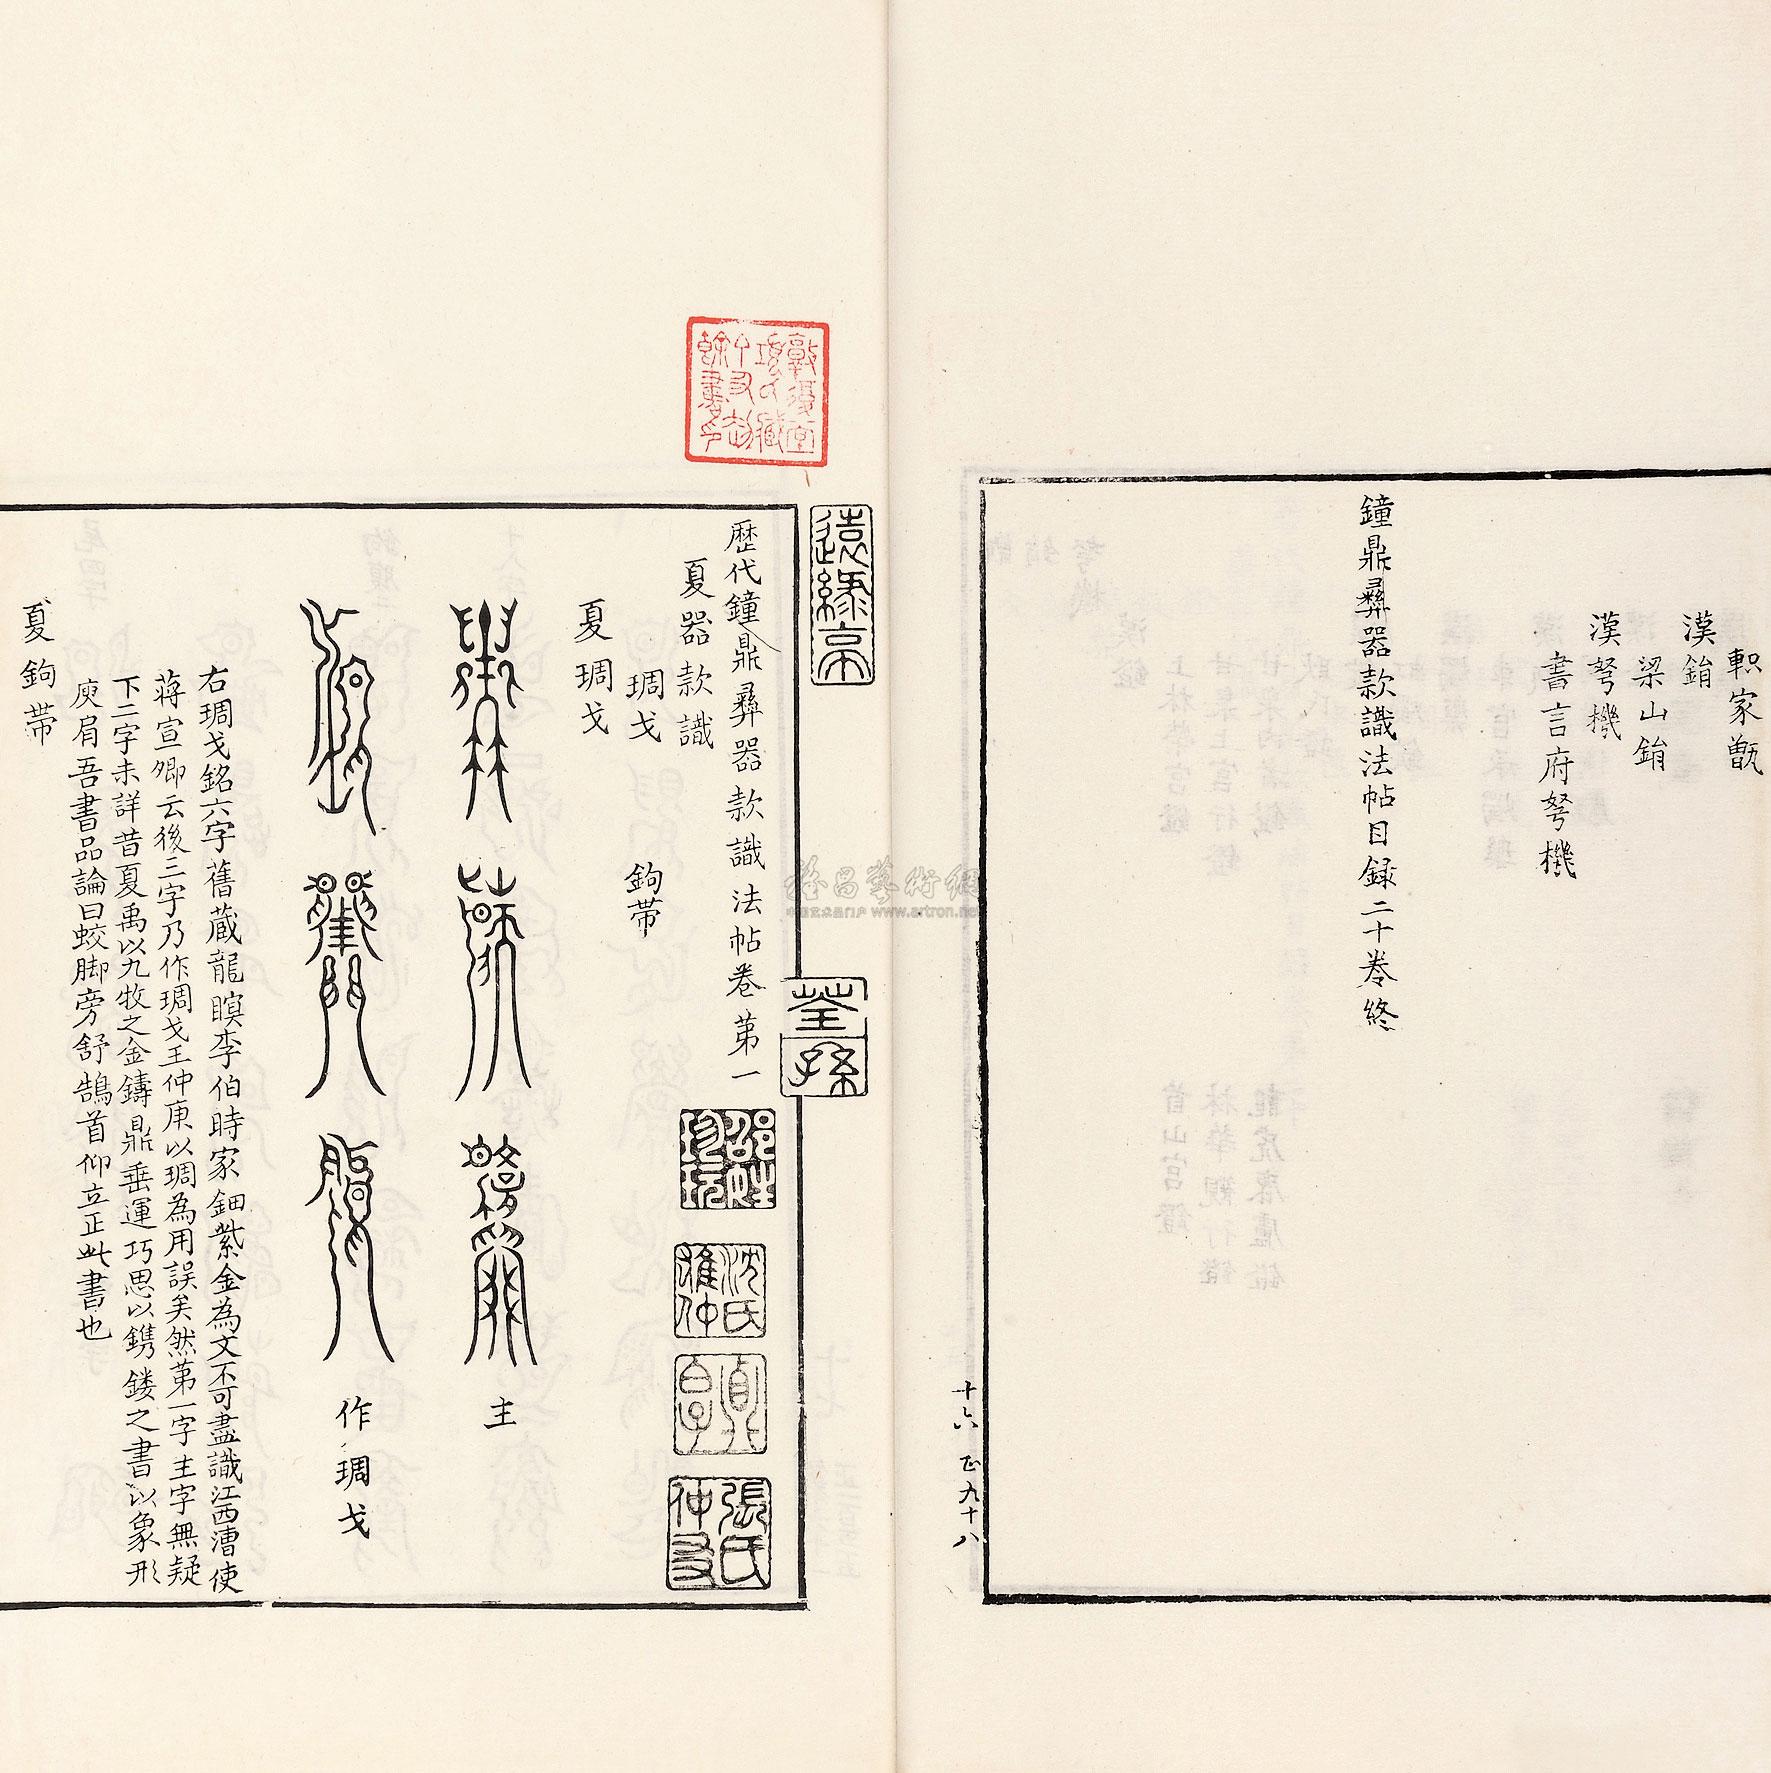 軹家甑
漢鋗
梁山鋗
漢弩機
書言府弩機
鐘鼎彝器款識法帖目録二十卷終
十六 正九十八
歷代鐘鼎彝器款識法帖卷第一
夏器款識
琱戈 鉤帶
夏琱戈
主
作琱戈
右琱戈銘六字舊蔵龍瞑李伯時家鈿紫金為文不可盡識江西漕使
蔣宣卿云後三字乃作琱戈王仲庚以琱為用誤矣然苐一字主字無疑
下二字未詳昔夏禹以九牧之金鑄鼎垂運巧思以鐫鏤之書以象形
庾肩吾書品論曰蛟脚旁舒鵠首仰立正此書也
夏鉤帶
遠緑亭
張氏
沈氏
雅昌藝術網
www.artron.net